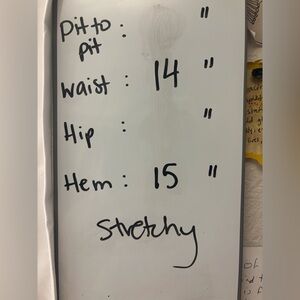 Pit to : "
pit
Waist : 14 "
Hip : "
Hem : 15 "
Stretchy